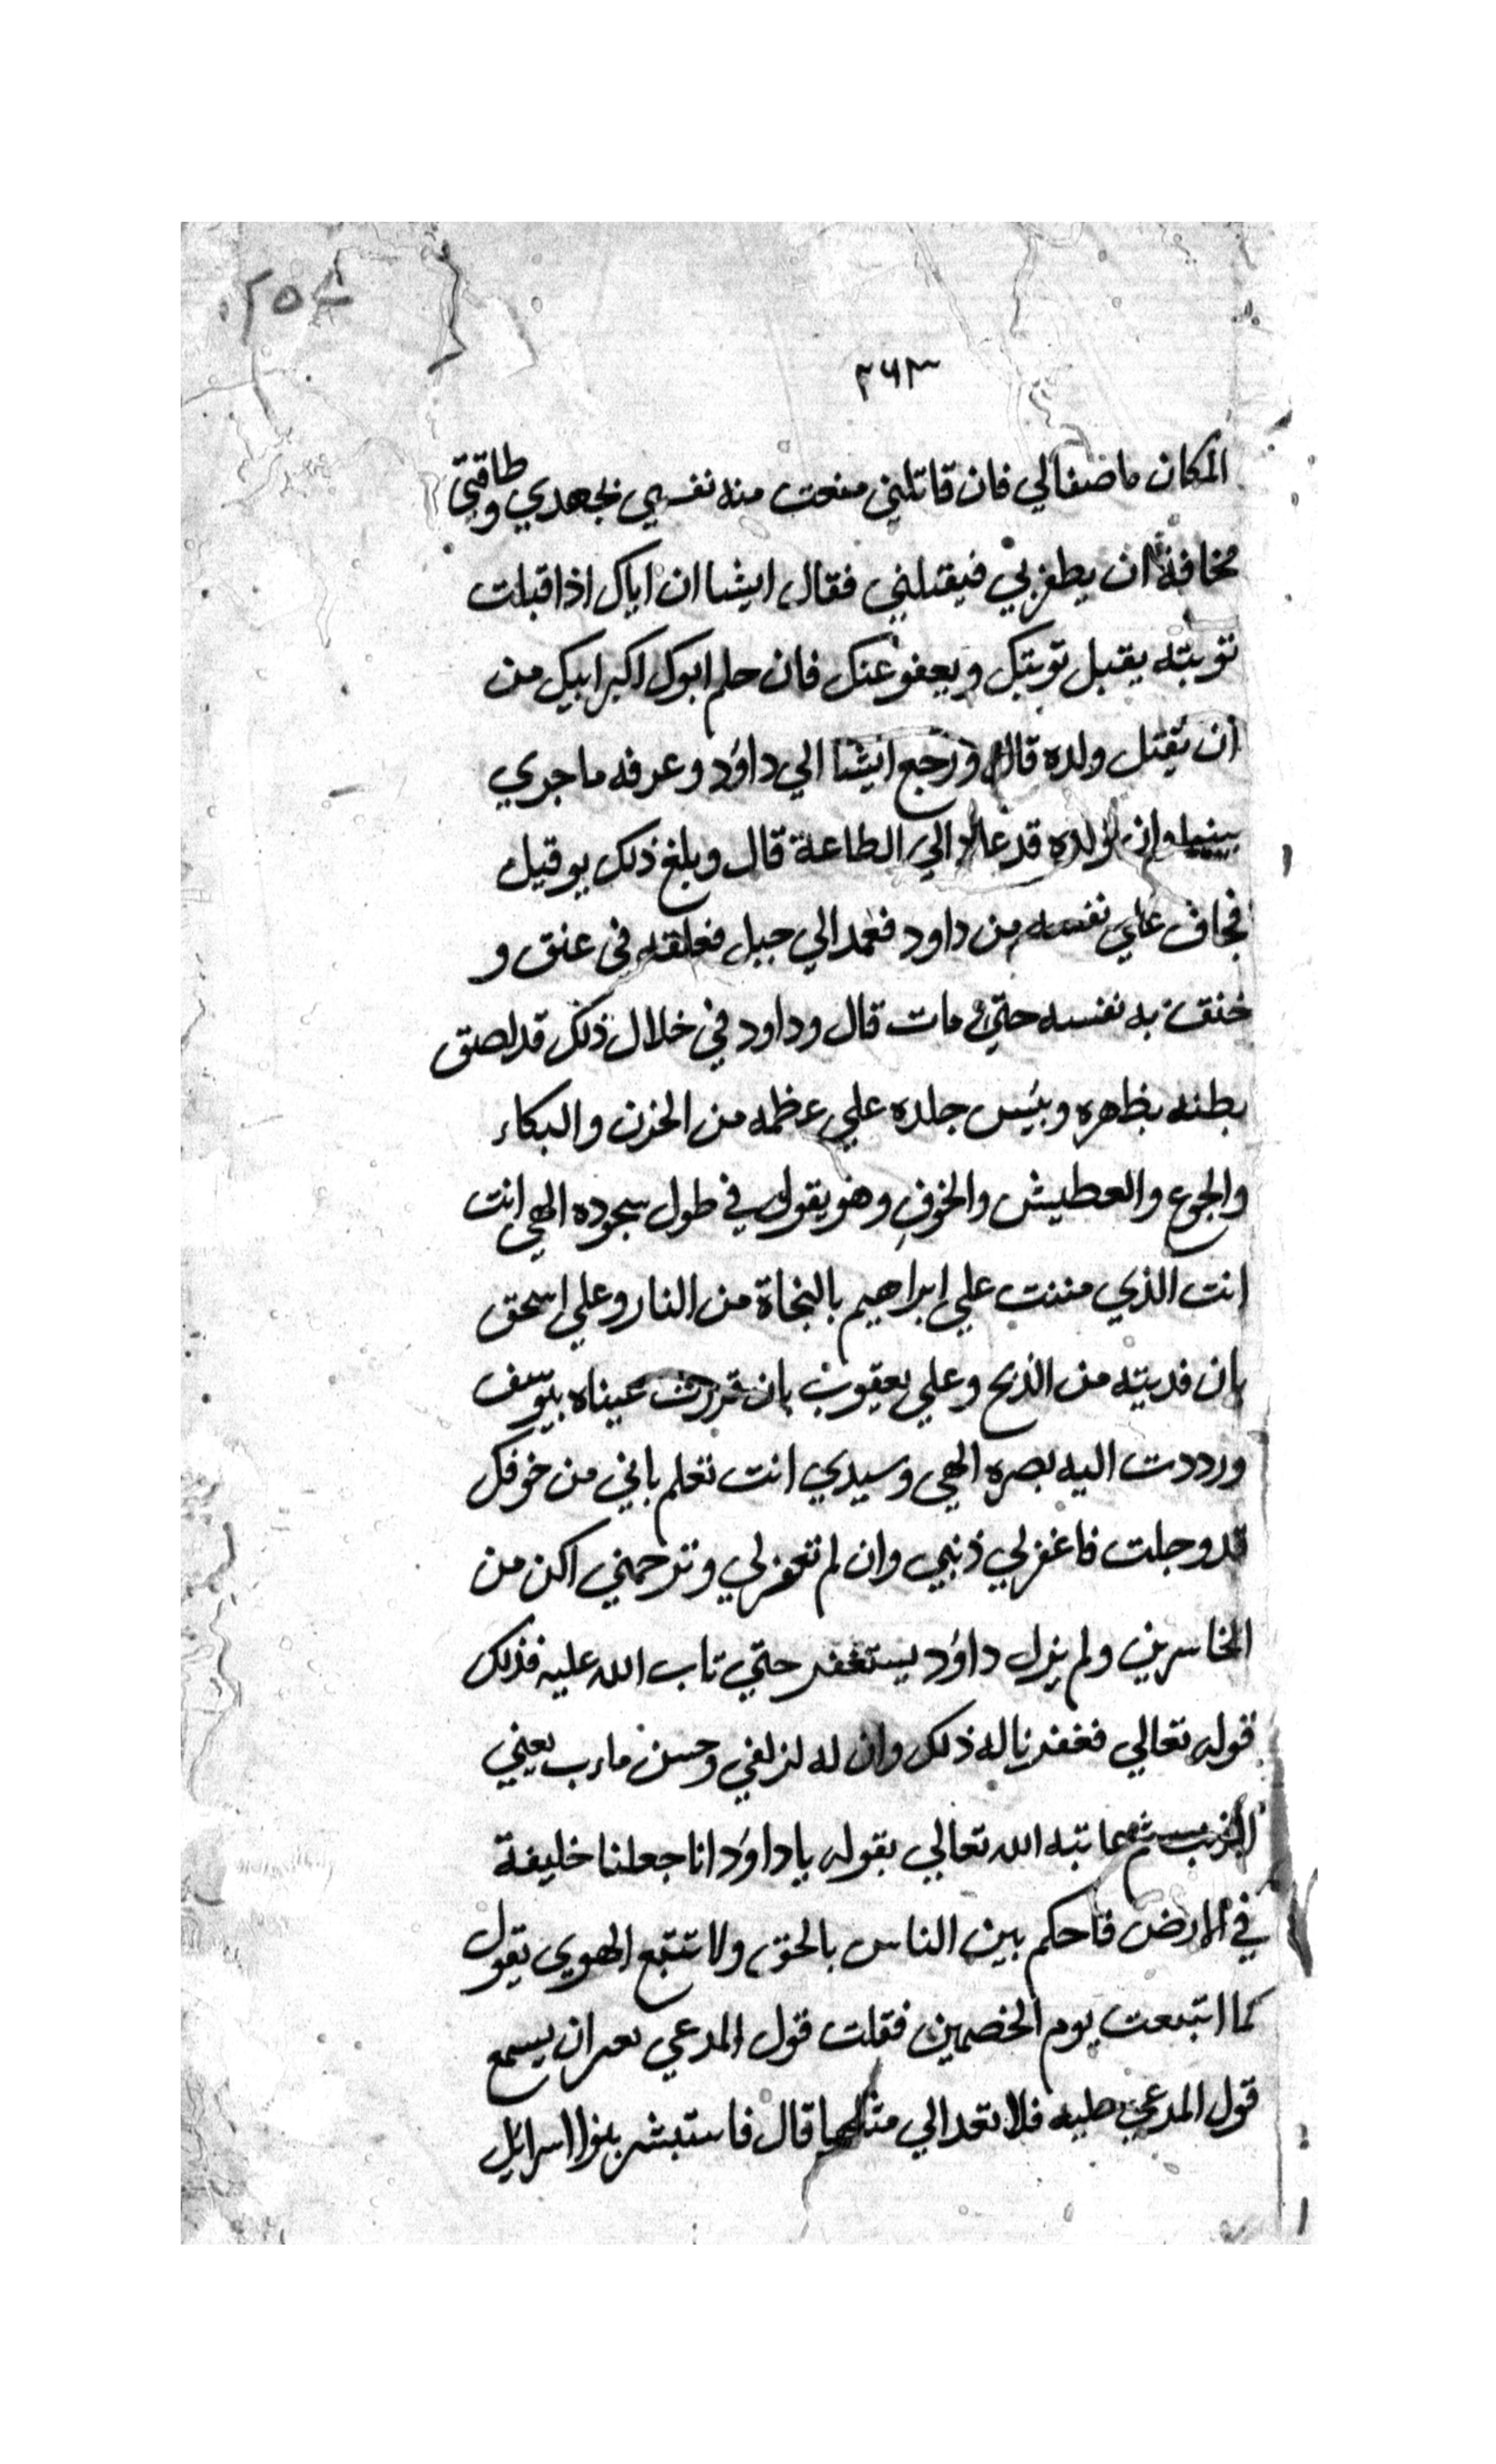 ٢٥٤
٢٦٣
المكان ما ضفالي فان قاتلني منعت منه نفسي بجهدي وطاقتي
مخافة ان يظفر بي فيقتلني فقال ايشا ان اباك اذا قبلت
توبته يقبل توبتك ويعفو عنك فان حلم ابوك اكبر ابيك من
ان يقتل ولده قال ورجع ايشا الي داوُد وعرفه ما جري
بينهما وان ولده قد عاد الي الطاعة قال وبلغ ذلك يوقيل
فخاف علي نفسه من داود فعمد الي حبل فعلقه في عنق و
خنق به نفسه حتي مات قال وداود في خلال ذلك قد لصق
بطنه بظهره ويئس جلده علي عظمه من الحزن والبكاء
والجوع والعطيش والخوف وهو يقول في طول سجوده الهي انت
انت الذي مننت علي ابراهيم بالنجاة من النار وعلي اسحق
بان فديته من الذبح وعلي يعقوب بان قررت عيناه بيوسف
ورددت اليه بصره الهي وسيدي انت تعلم باني من خوفك
قد وجلت فاغفر لي ذنبي وان لم تغفر لي وترحمني اكن من
الخاسرين ولم يزل داوُد يستغفر حتي تاب الله عليه فذلك
قوله تعالي فغفرنا له ذلك وان له لزلفي وحسن ماب يعني
القرب ثم عاتبه الله تعالي بقوله يا داوُد انا جعلنا خليفة
في الارض فاحكم بين الناس بالحق ولا تتبع الهوي يقول
كما اتبعت يوم الخصمين فقلت قول المدعي بعد ان يسمع
قول المدعي عليه فلا تعد الي مثلها قال فاستبشر بنوا اسرائيل